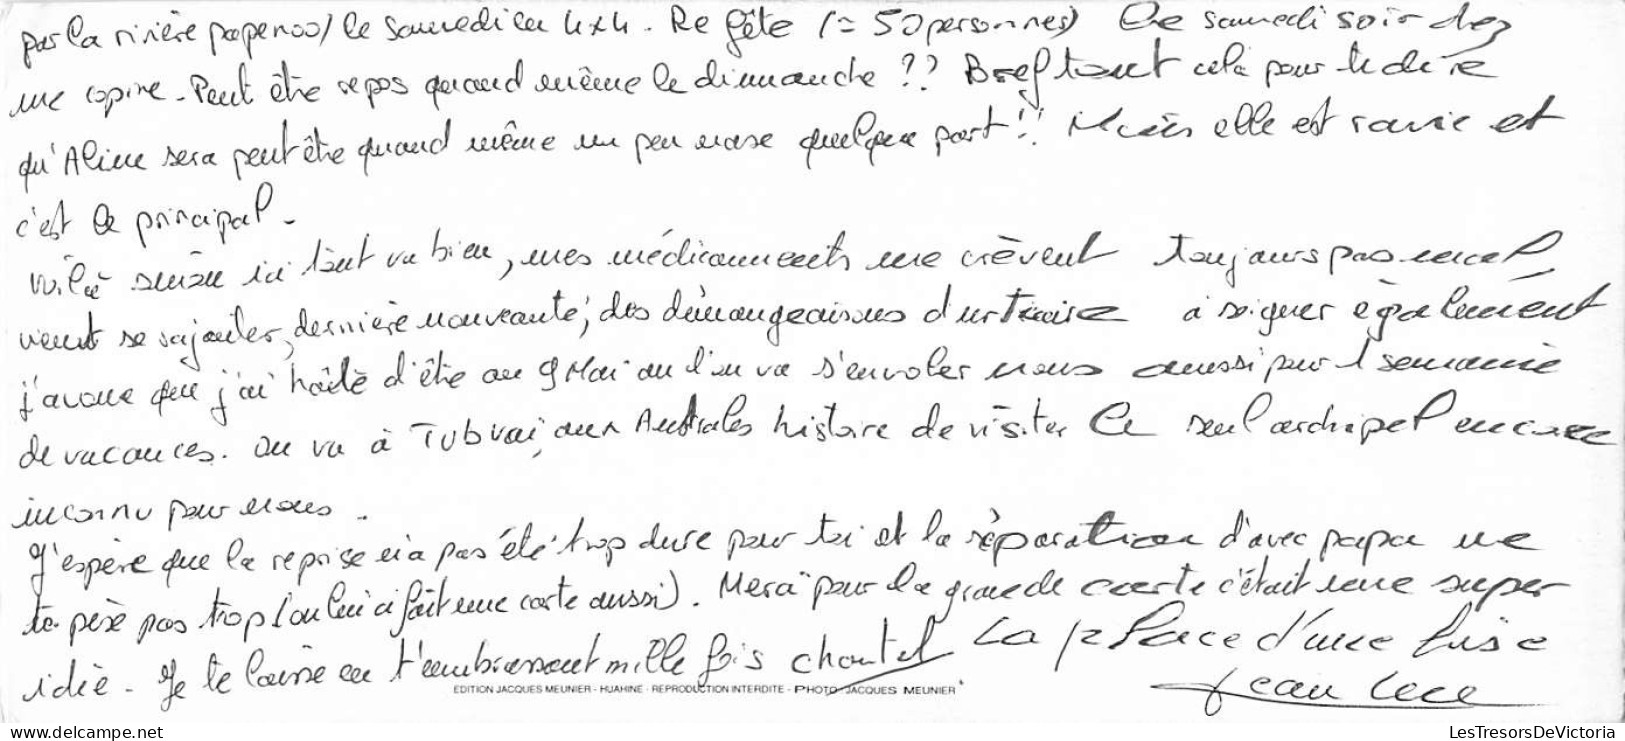 par la rivière papenoo) le samedi en 4x4. Re fête (= 50 personnes) le samedi soir chez
une copine. Peut être repos quand même le dimanche ?? Bref tout cela pour te dire
qu'Aline sera peut être quand même un peu nase quelque part !! Mais elle est ravie et
c'est le principal.
Voilà sinon ici tout va bien, mes médicaments me crèvent toujours pas mal
vient se rajouter, dernière nouveauté, des démangeaisons d'urticaire à soigner également
j'avoue que j'ai hâte d'être au 9 Mai où l'on va s'envoler nous aussi pour 1 semaine
de vacances. On va à Tubuai, aux Australes histoire de visiter le seul archipel encore
inconnu pour nous.
J'espère que la reprise n'a pas été trop dure pour toi et la séparation d'avec papa ne
te pèse pas trop (on lui a fait une carte aussi). Merci pour la grande carte c'était une super
idée. Je te laisse en t'embrassant mille fois chantal La place d'une bise
Jean Luc
EDITION JACQUES MEUNIER - HUAHINE - REPRODUCTION INTERDITE - PHOTO JACQUES MEUNIER
LesTresorsDeVictoria